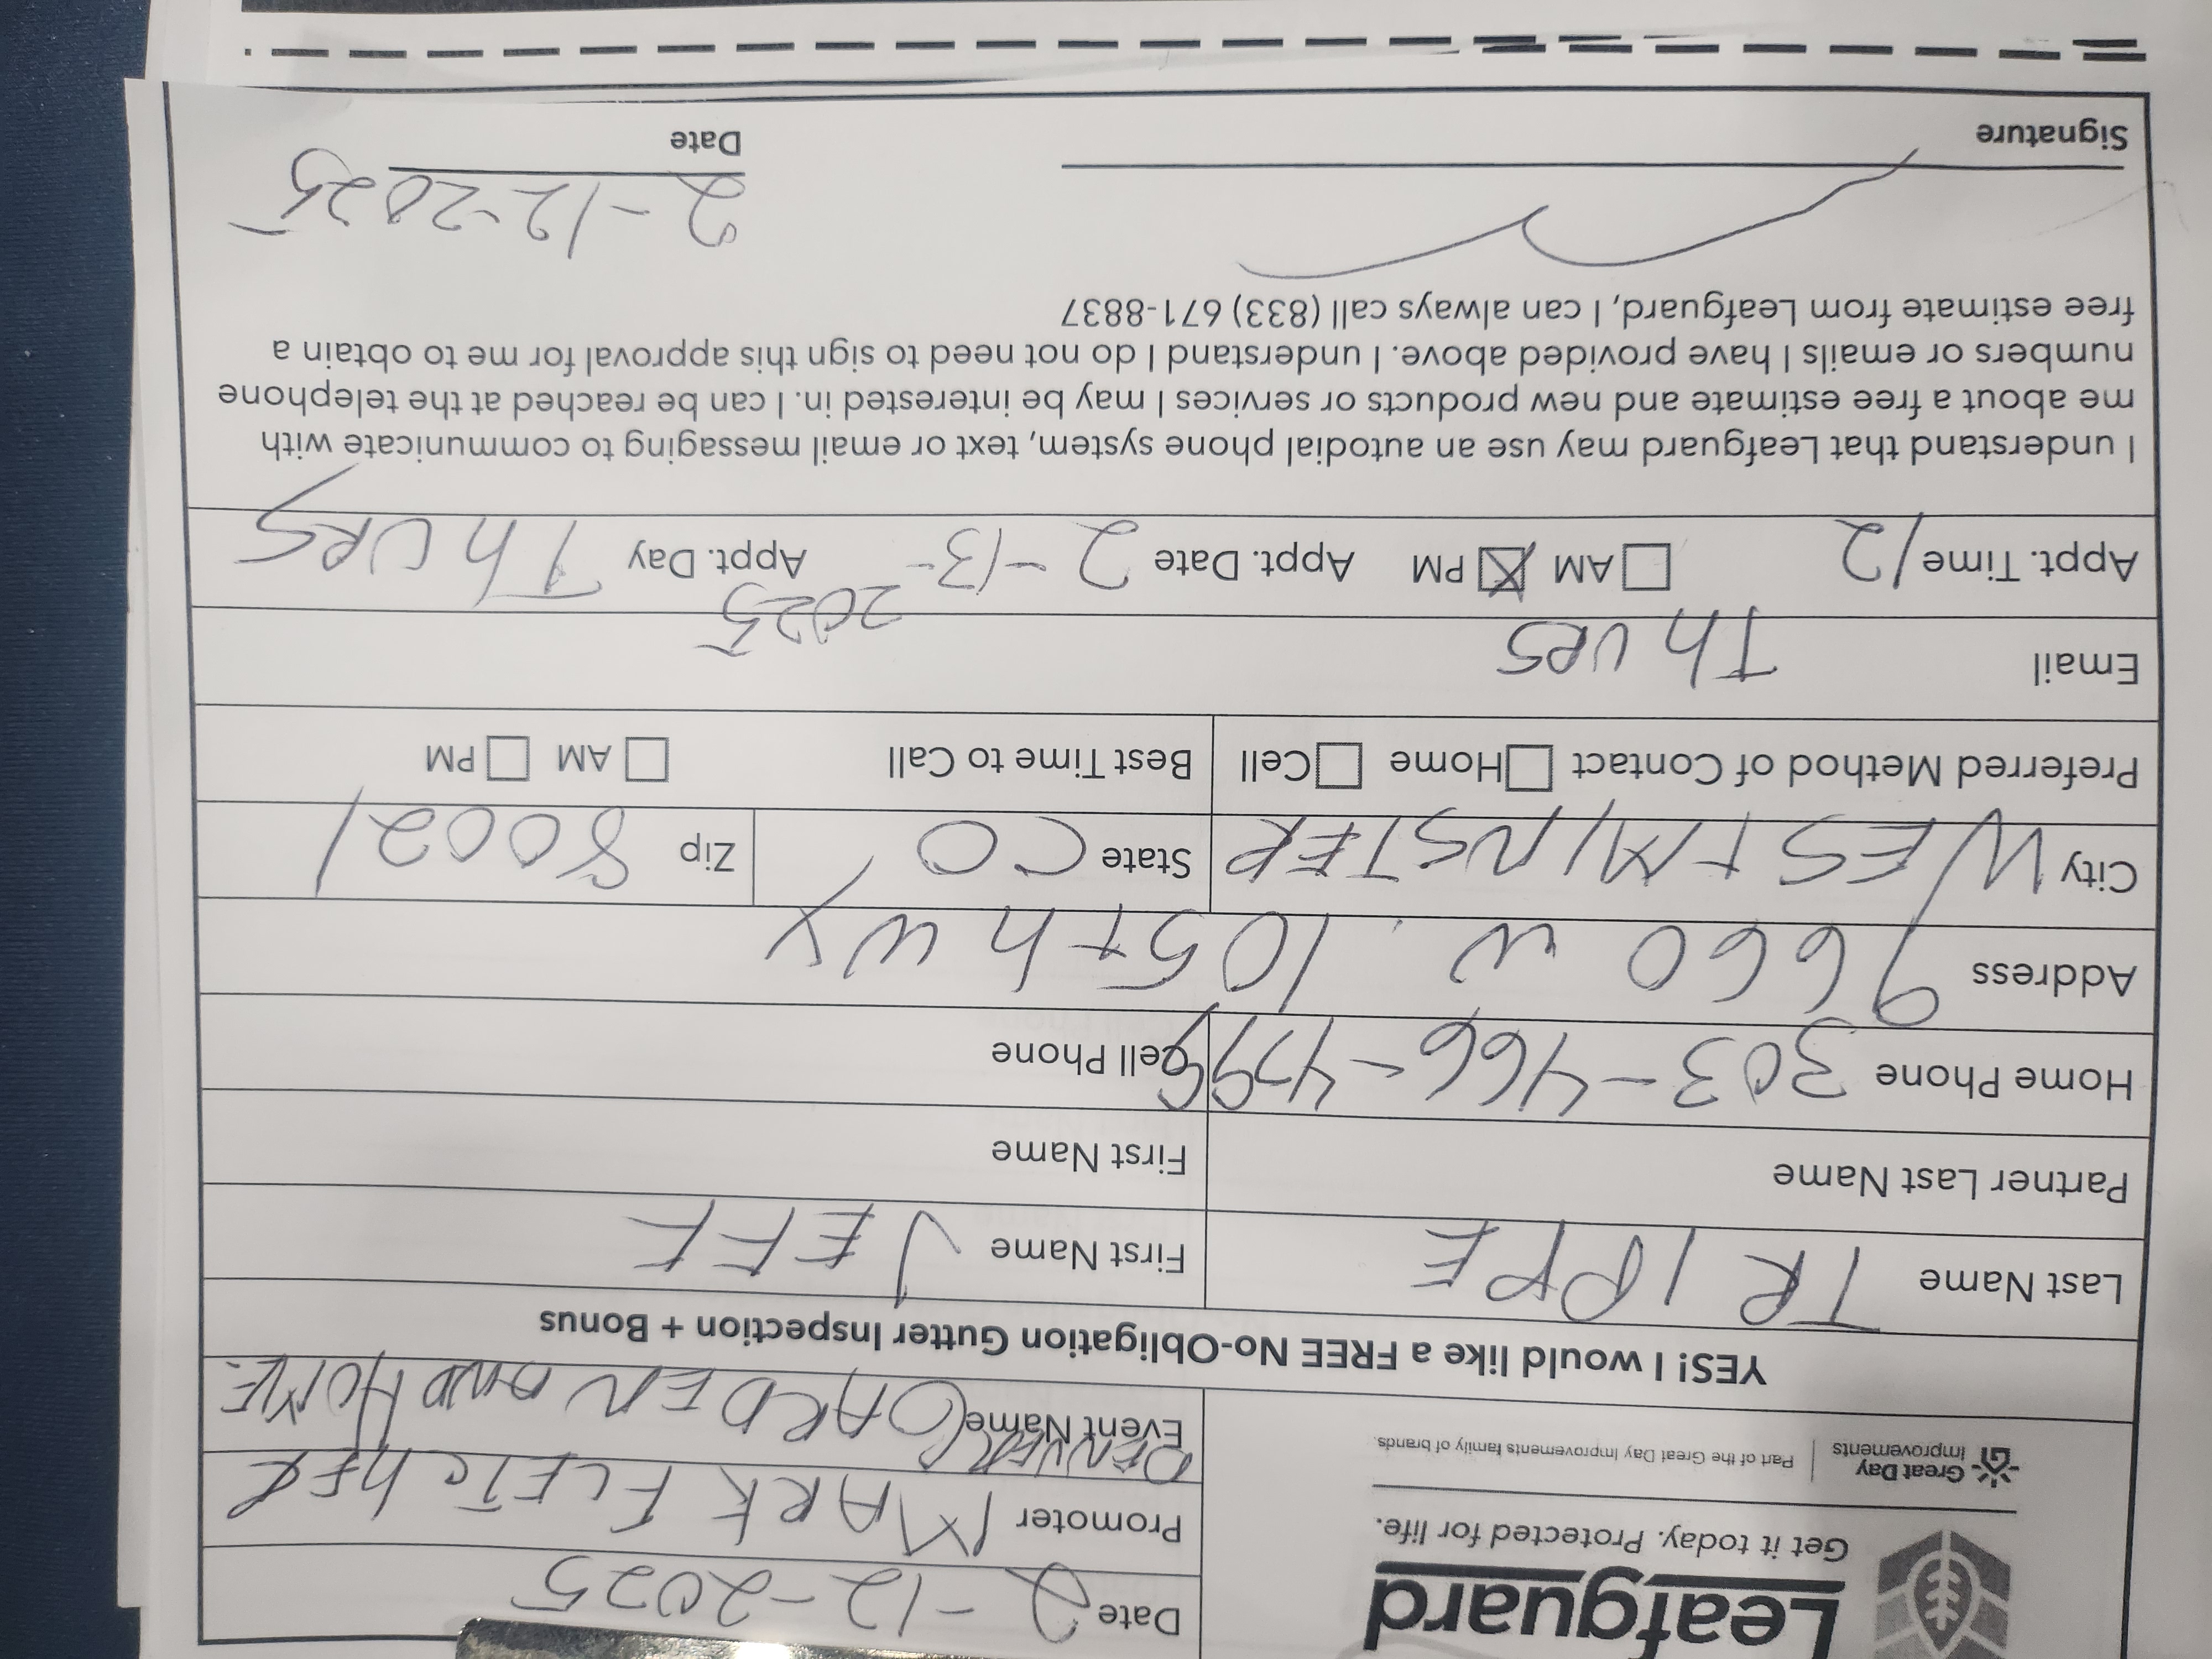 Leafguard
Get it today. Protected for life.
Great Day Improvements | Part of the Great Day Improvements family of brands.
Date 2-12-2025
Promoter MARK FLETchER
Event Name DENVER GARDEN AND HOME.
YES! I would like a FREE No-Obligation Gutter Inspection + Bonus
Last Name TRIPPE First Name JEFF
Partner Last Name First Name
Home Phone 303-466- Cell Phone
Address 9660 W. 105th WY
City WESTMINSTER State CO Zip 80021
Preferred Method of Contact Home Cell Best Time to Call AM PM
Email ThURS
Appt. Time 12 AM PM Appt. Date 2-13-2025 Appt. Day ThURS
I understand that Leafguard may use an autodial phone system, text or email messaging to communicate with
me about a free estimate and new products or services I may be interested in. I can be reached at the telephone
numbers or emails I have provided above. I understand I do not need to sign this approval for me to obtain a
free estimate from Leafguard, I can always call (833) 671-8837
2-12-2025
Signature Date